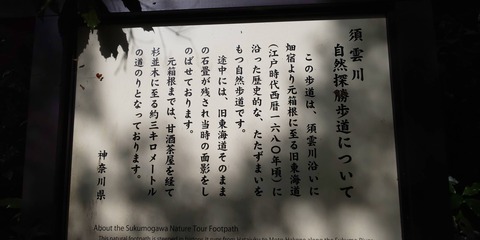 須雲川
自然探勝歩道について
この歩道は、須雲川沿いに
畑宿より元箱根に至る旧東海道
(江戸時代西暦一六八〇年頃)に
沿った歴史的な、たたずまいを
もつ自然歩道です。
途中には、旧東海道そのまま
の石畳が残され当時の面影をし
のばせております。
元箱根までは、甘酒茶屋を経て
杉並木に至る約三キロメートル
の道のりとなっております。
神奈川県
About the Sukumogawa Nature Tour Footpath